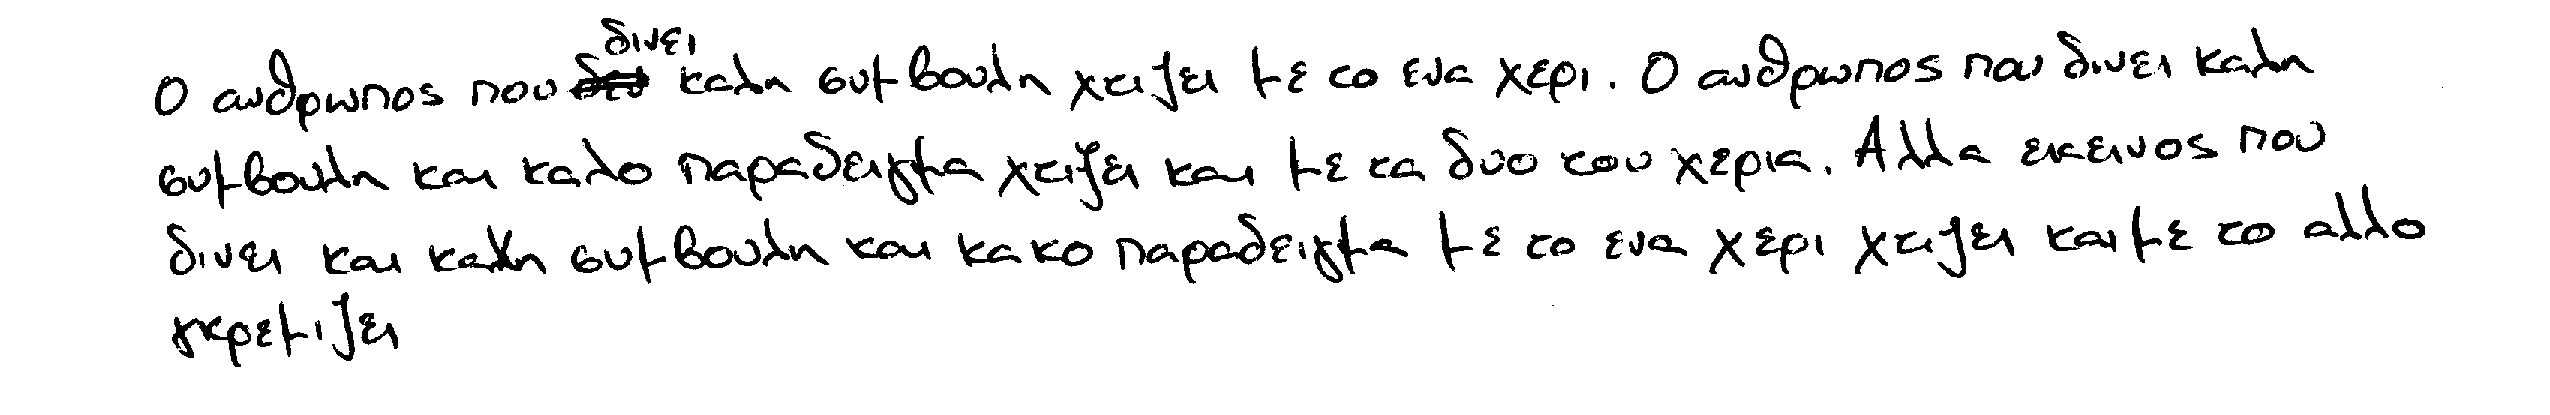 Ο ανθρωπος που δινει καλη συμβουλη χτιζει με το ενα χερι. Ο ανθρωπος που δινει καλη
συμβουλη και καλο παραδειγμα χτιζει και με τα δυο του χερια. Αλλα εκεινος που
δινει και καλη συμβουλη και κακο παραδειγμα με το ενα χερι χτιζει και με το αλλο
γκρεμιζει